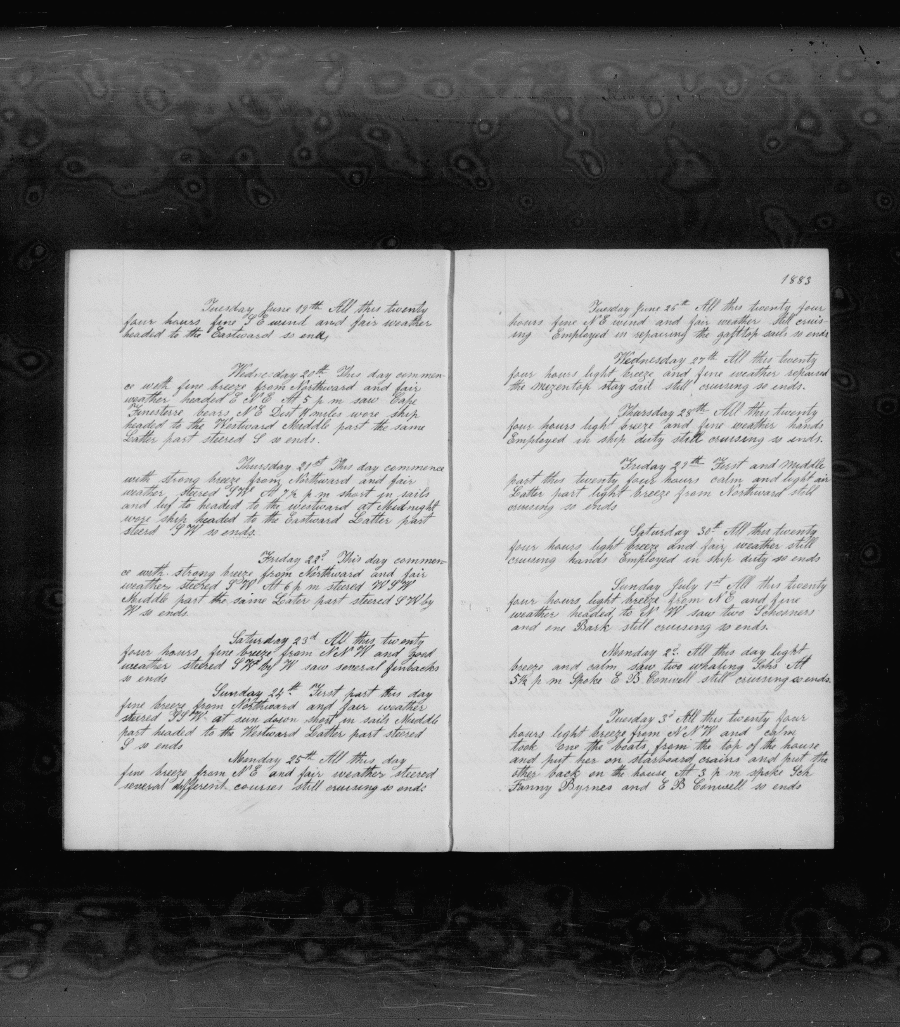 Tuesday June 19th All this twenty
four hours fine S E wind and fair weather
headed to the Eastward so ends
Wednesday 20th This day commen-
ce with fine breeze from Northward and fair
weather headed E N E At 5 p m saw Cape
Finesterre bears N E Dist miles wore ship
headed to the Westward Middle part the same
Latter part steered S so ends.
Thursday 21st This day commence
with strong breeze from Northward and fair
weather steered S W At 7½ p m short in sails
and luf to headed to the westward at Midnight
wore ship headed to the Eastward Latter part
steerd S W so ends.
Friday 22d This day commen-
ce with strong breeze from Northward and fair
weather steered S W At 6 p m steered W S W
Middle part the same Later part steered S W by
W so ends
Saturday 23d All this twenty
four hours fine breeze from N N W and good
weather steered S W by W saw several finbacks
so ends
Sunday 24th First part this day
fine breeze from Northward and fair weather
steered S S W at sun down short in sails Middle
part headed to the Westward Latter part steered
S so ends
Monday 25th All this day
fine breeze from N E and fair weather steered
several different courses still cruising so ends
1883
Tuesday June 26th All this twenty four
hours fine N E wind and fair weather still cruis-
ing Employed in repairing the gafttop sails so ends
Wednesday 27th All this twenty
four hours light breeze and fine weather repaired
the mezentop stay sail still cruising so ends.
Thursday 28th All this twenty
four hours light breeze and fine weather hands
Employed in ship duty still cruising so ends.
Friday 29th First and Middle
part this twenty four hours calm and light air
Latter part light breeze from Northward still
cruising so ends
Saturday 30th All this twenty
four hours light breeze and fair weather still
cruising hands Employed in ship duty so ends
Sunday July 1st All this twenty
four hours light breeze from N E and fine
weather headed to N W saw two Schooners
and one Bark still creuising so ends.
Monday 2d All this day light
breeze and calm saw two whaling Schs At
5½ p m Spoke E B Conwell still cruising so ends.
Tuesday 3d All this twenty four
hours light breeze from N N W and calm
took one the boats from the top of the house
and put her on starboard crains and put the
other back on the house At 3 p m spoke Sch
Fanny Byrnes and E B Conwell so ends